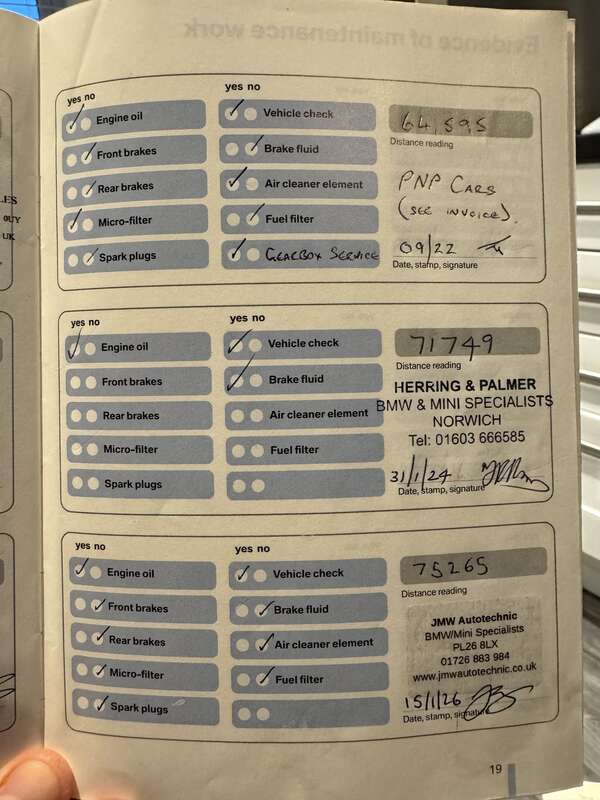 Evidence of maintenance work
LES
GUY
UK
yes no
Engine oil
Front brakes
Rear brakes
Micro-filter
Spark plugs
yes no
Vehicle check
Brake fluid
Air cleaner element
Fuel filter
GEARBOX SERVICE
64,595
Distance reading
PNP CARS
(SEE INVOICE).
09/22
Date, stamp, signature
yes no
Engine oil
Front brakes
Rear brakes
Micro-filter
Spark plugs
yes no
Vehicle check
Brake fluid
Air cleaner element
Fuel filter
71749
Distance reading
HERRING & PALMER
BMW & MINI SPECIALISTS
NORWICH
Tel: 01603 666585
31/1/24
Date, stamp, signature
yes no
Engine oil
Front brakes
Rear brakes
Micro-filter
Spark plugs
yes no
Vehicle check
Brake fluid
Air cleaner element
Fuel filter
75265
Distance reading
JMW Autotechnic
BMW/Mini Specialists
PL26 8LX
01726 883 984
www.jmwautotechnic.co.uk
15/1/26
Date, stamp, signature
19